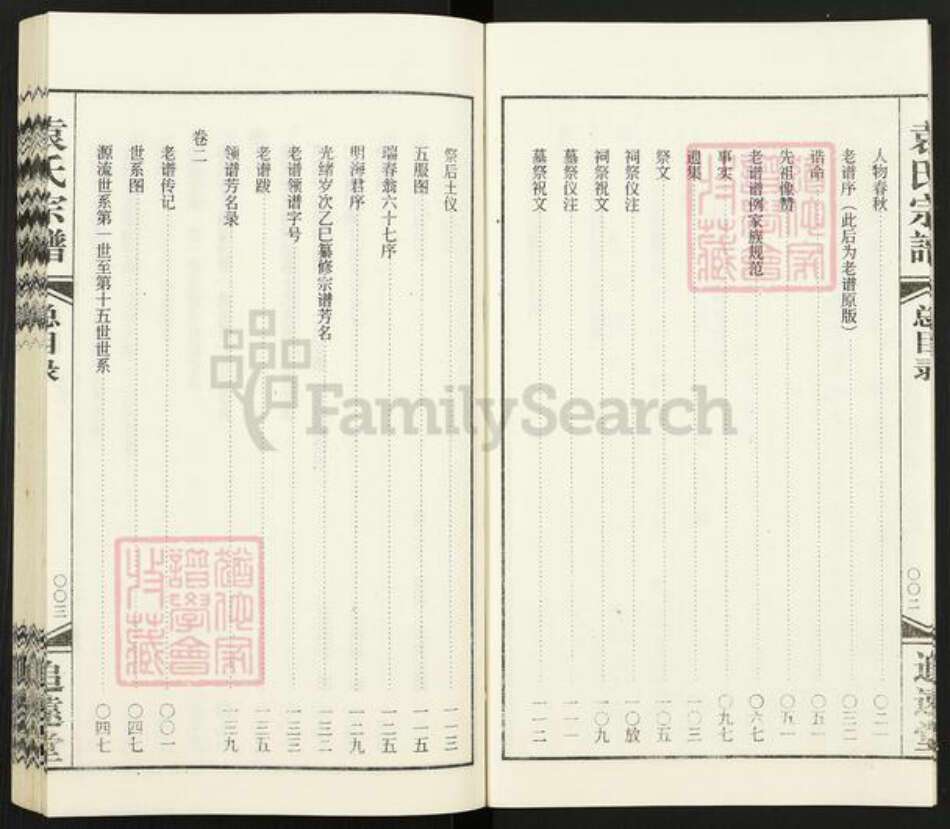 袁氏宗譜
总目录
〇〇二
追遠堂
人物春秋 〇二一
老谱序（此后为老谱原版） 〇三二
诰命 〇五一
先祖像赞 〇五一
老谱谱例家族规范 〇六七
事实 〇九七
遗集 一〇三
祭文 一〇五
祠祭仪注 一〇放
祠祭祝文 一〇九
墓祭仪注 一一一
墓祭祝文 一一二
祭后土仪 一一三
五服图 一一五
瑞春翁六十七序 一二五
明海君序 一二九
光绪岁次乙巳纂修宗谱芳名 一三二
老谱领谱字号 一三三
老谱跋 一三五
领谱芳名录 一三九
卷二
老谱传记 〇〇一
世系图 〇四七
源流世系第一世至第十五世世系 〇四七
袁氏宗譜
总目录
〇〇三
追遠堂
FamilySearch
猶他家
譜學會
收藏
猶他家
譜學會
收藏